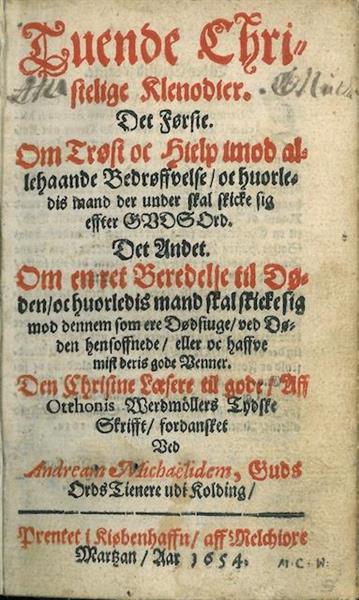 Tuende Chri-
stelige Klenodier.
Det Første.
Om Trøst oc Hielp imod al-
lehaande Bedrøffvelse / oc huorle-
dis mand der under skal skicke sig
effter GUDS Ord.
Det Andet.
Om en ret Beredelse til Dø-
den / oc huorledis mand skal skicke sig
mod dennem som ere Dødsiuge / ved Dø-
den hensoffnede / eller oc haffve
mist deris gode Venner.
Den Christne Læsere til gode / Aff
Otthonis Werdmöllers Tydske
Skrifft / fordansket
Ved
Andream Michaëlidem, Guds
Ords Tienere udi Kolding /
Prentet i Kiøbenhaffn / aff Melchiore
Martzan / Aar 1654.
M.C.W.